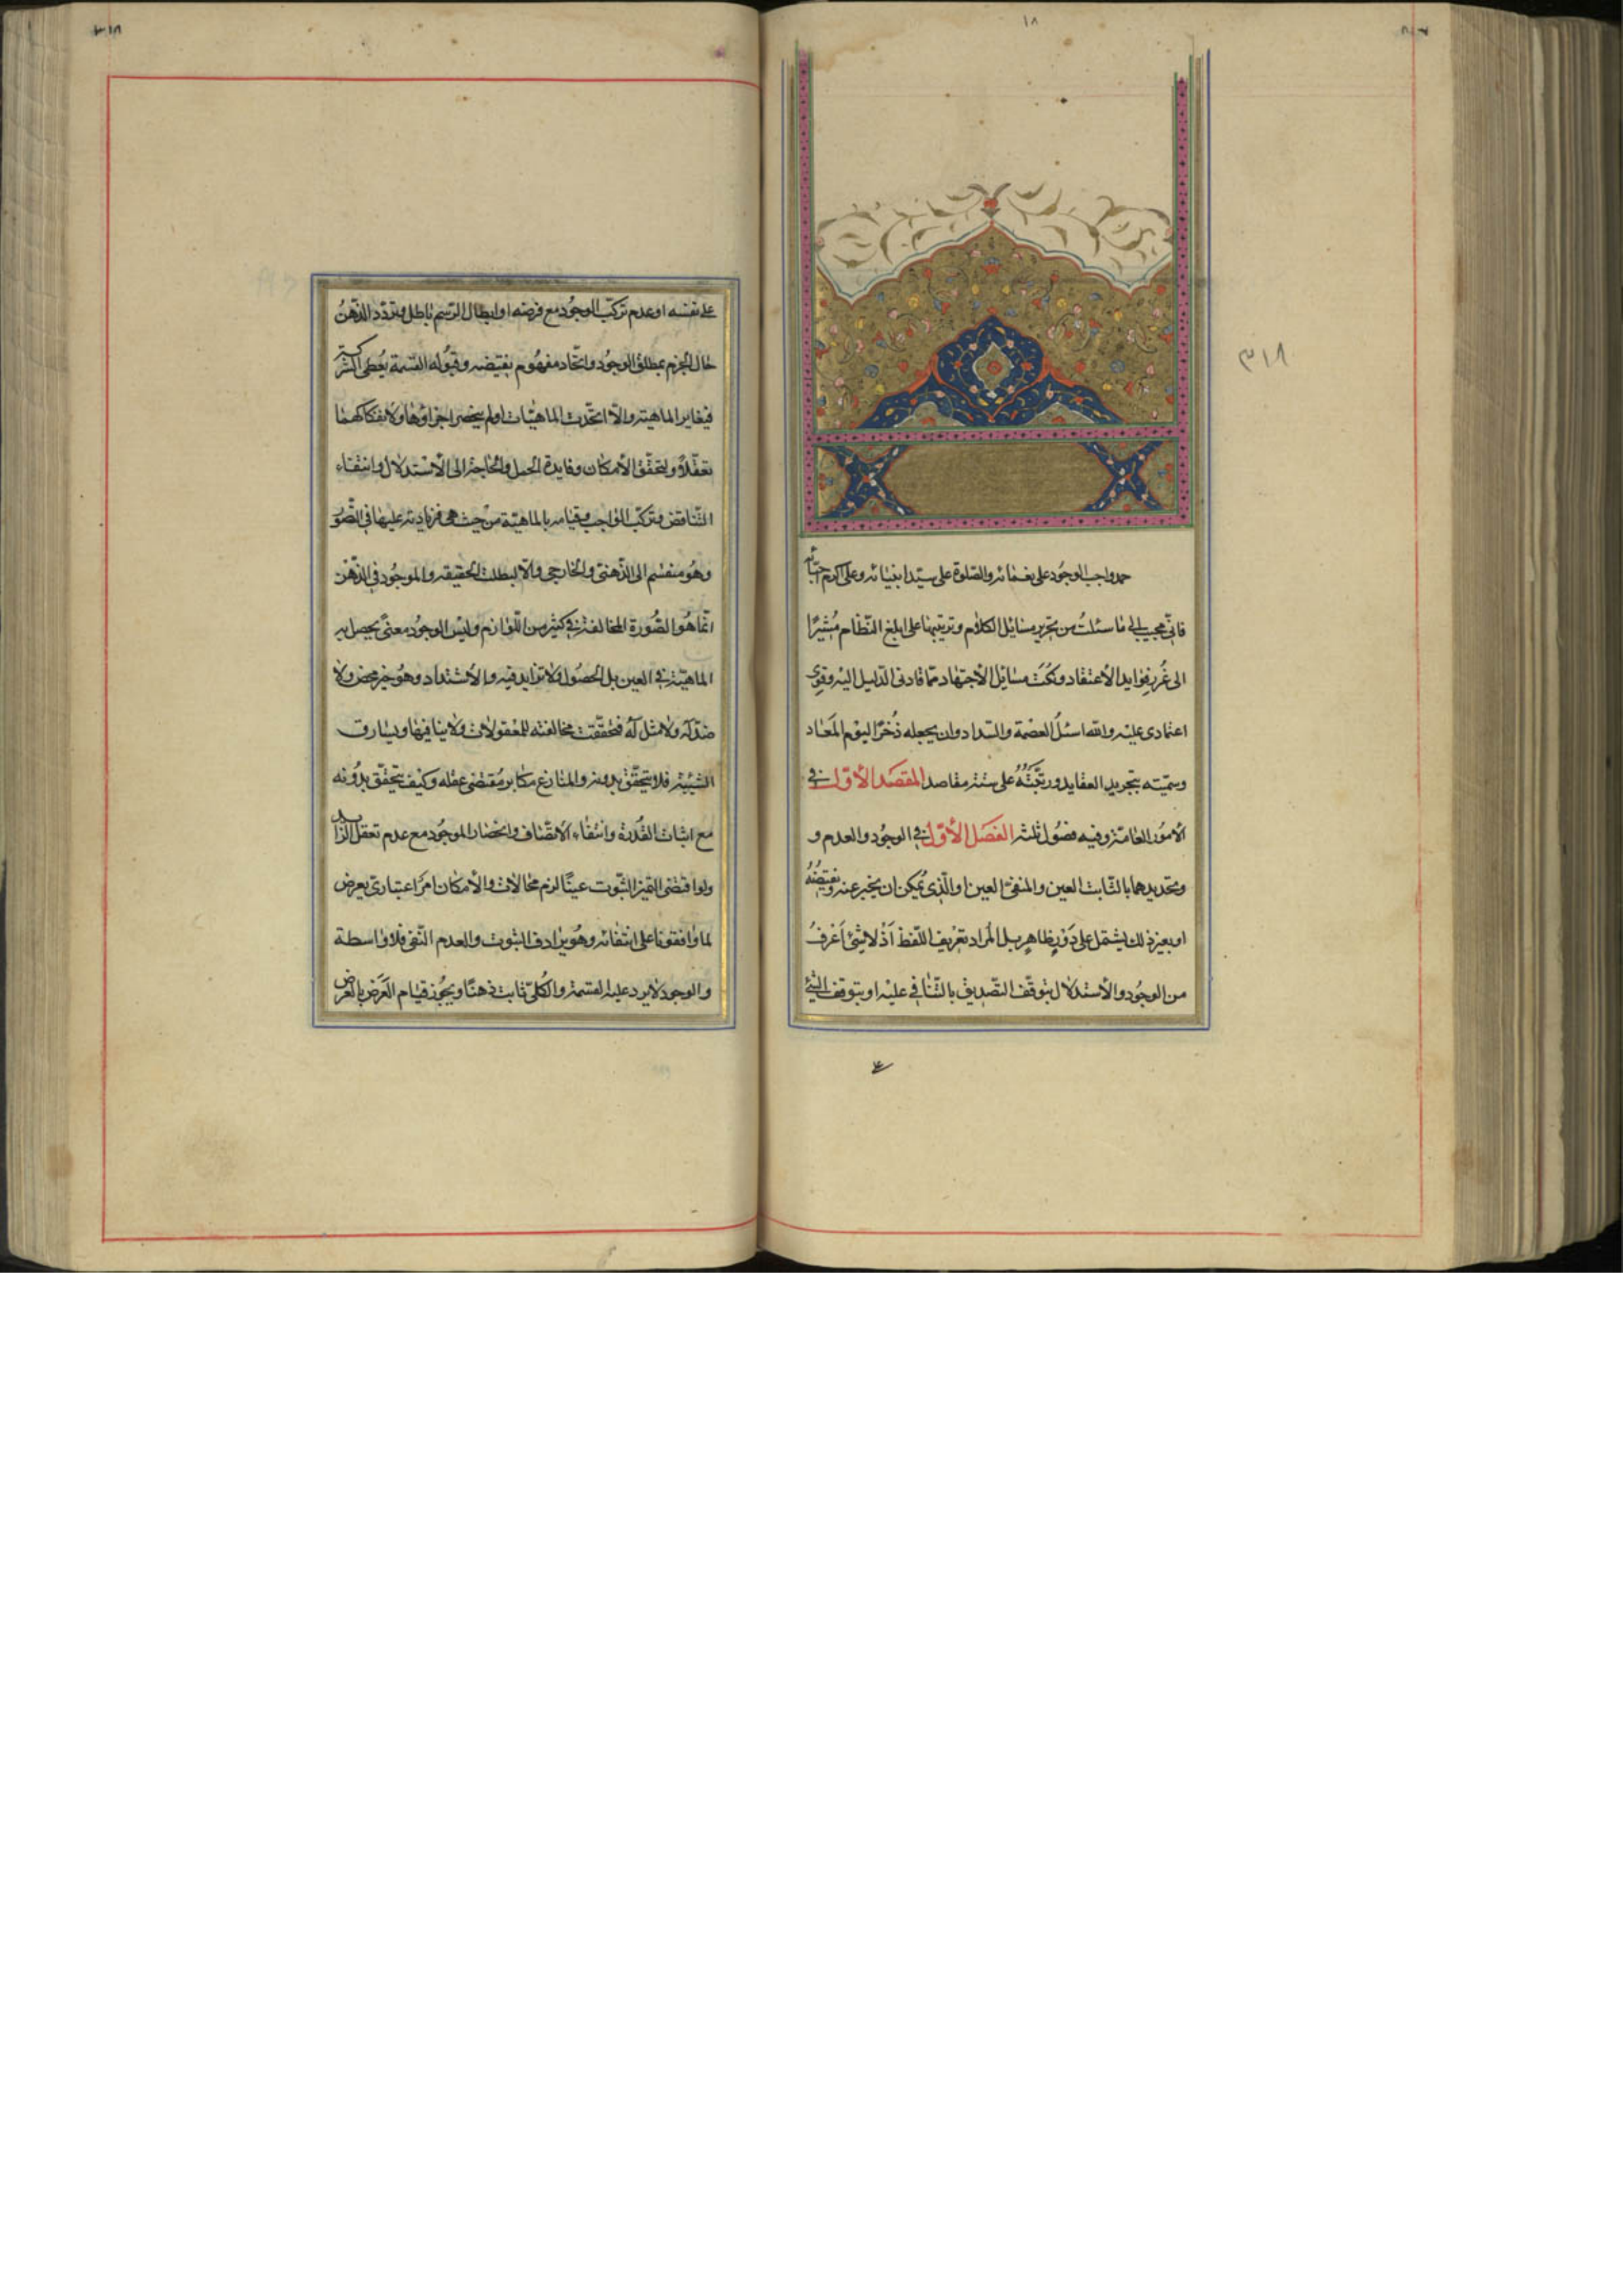 ١٨
٣١٨
حمد واجب الوجود على نعمائه والصلوة على سيد انبيائه وعلى اكرم احبائه
فانى مجيب الى ما سئلت من تحرير مسائل الكلام وترتيبها على ابلغ النظام مُشيرًا
الى غُرر فوايد الاعتقاد ونكت مسائل الاجتهاد ممّا قادنى الدليل اليه وقوى
اعتمادى عليه والله اسئلُ العصمة والسّداد وان يجعله ذُخرًا ليوم المعاد
وسمّيته بتجريد العقايد ورتّبتُهُ على ستة مقاصد المقصَد الأوّل فى
الامور العامّة وفيه فصُول ثلثة الفصَل الأوّل فى الوجُود والعدم و
وتحديدهما بالثّابت العين والمنفىّ العين او الّذى يُمكن ان يخبر عنه ونقيضهُ
او بغير ذلك يشتمل على دَوْرٍ ظاهرٍ بل المراد تعريف اللّفظ اذ لا شئ اَعْرفُ
من الوجُود والاستدلال بتوقّف التّصديق بالتّنافى عليه او بتوقف الشئ
على نفسه او عدم تركّب الوجُود مع فرضه او ابطال الرّسم باطل وتردّد الذّهنُ
حال الجزم بمطلق الوجُود واتّحاد مفهُوم نقيضه وقبُوله القسمة يُعطى الشركة
فيغاير الماهية والاّ اتّحدت الماهيّات او لم ينحصر اجزاؤها ولانفكاكهما
تعقّلاً ولتحقّق الأمكان وفايدة الحمل والحاجة الى الأستدلال وانتفاء
التّناقض وتركّب الواجب وقيامه بالماهيّة من حيث هى فزيادته عليها فى التّصوّر
وهُو منقسم الى الذّهنىّ والخارجى والاّ لبطلت الحقيقه والموجُود فى الذّهن
انّما هُو الصُّورة المخالفة فى كثير من اللّوازم وليس الوجُود معنىً يحصل به
الماهيّة فى العين بل الحصُول ولا تزايد فيه ولا اشتداد وهُو خير محض ولا
ضدّ له ولا مثل له فتحقّقت مخالفته للمعقولات ولا ينافيها ويساوق
الشيئية فلا تتحقّق بدونه والمنازع مكابر مُقتضى عقله وكيف تتحقّق بدُونه
مع اثبات القُدرة وانتفاء الاتّصاف وانحصار الموجُود مع عدم تعقل الزايد
ولو اقتضى التميز الثّبوت عينًا لزم محالات والأمكان امرٌ اعتبارىّ يعرض
لما وافقونا على انتفائه وهُو يرادف الثبوت والعدم النّفى فلا واسطة
والوجود لا يرد عليه القسمة والكُلىّ ثابت ذهنًا ويجُوز قيام العَرَض بالعَرض